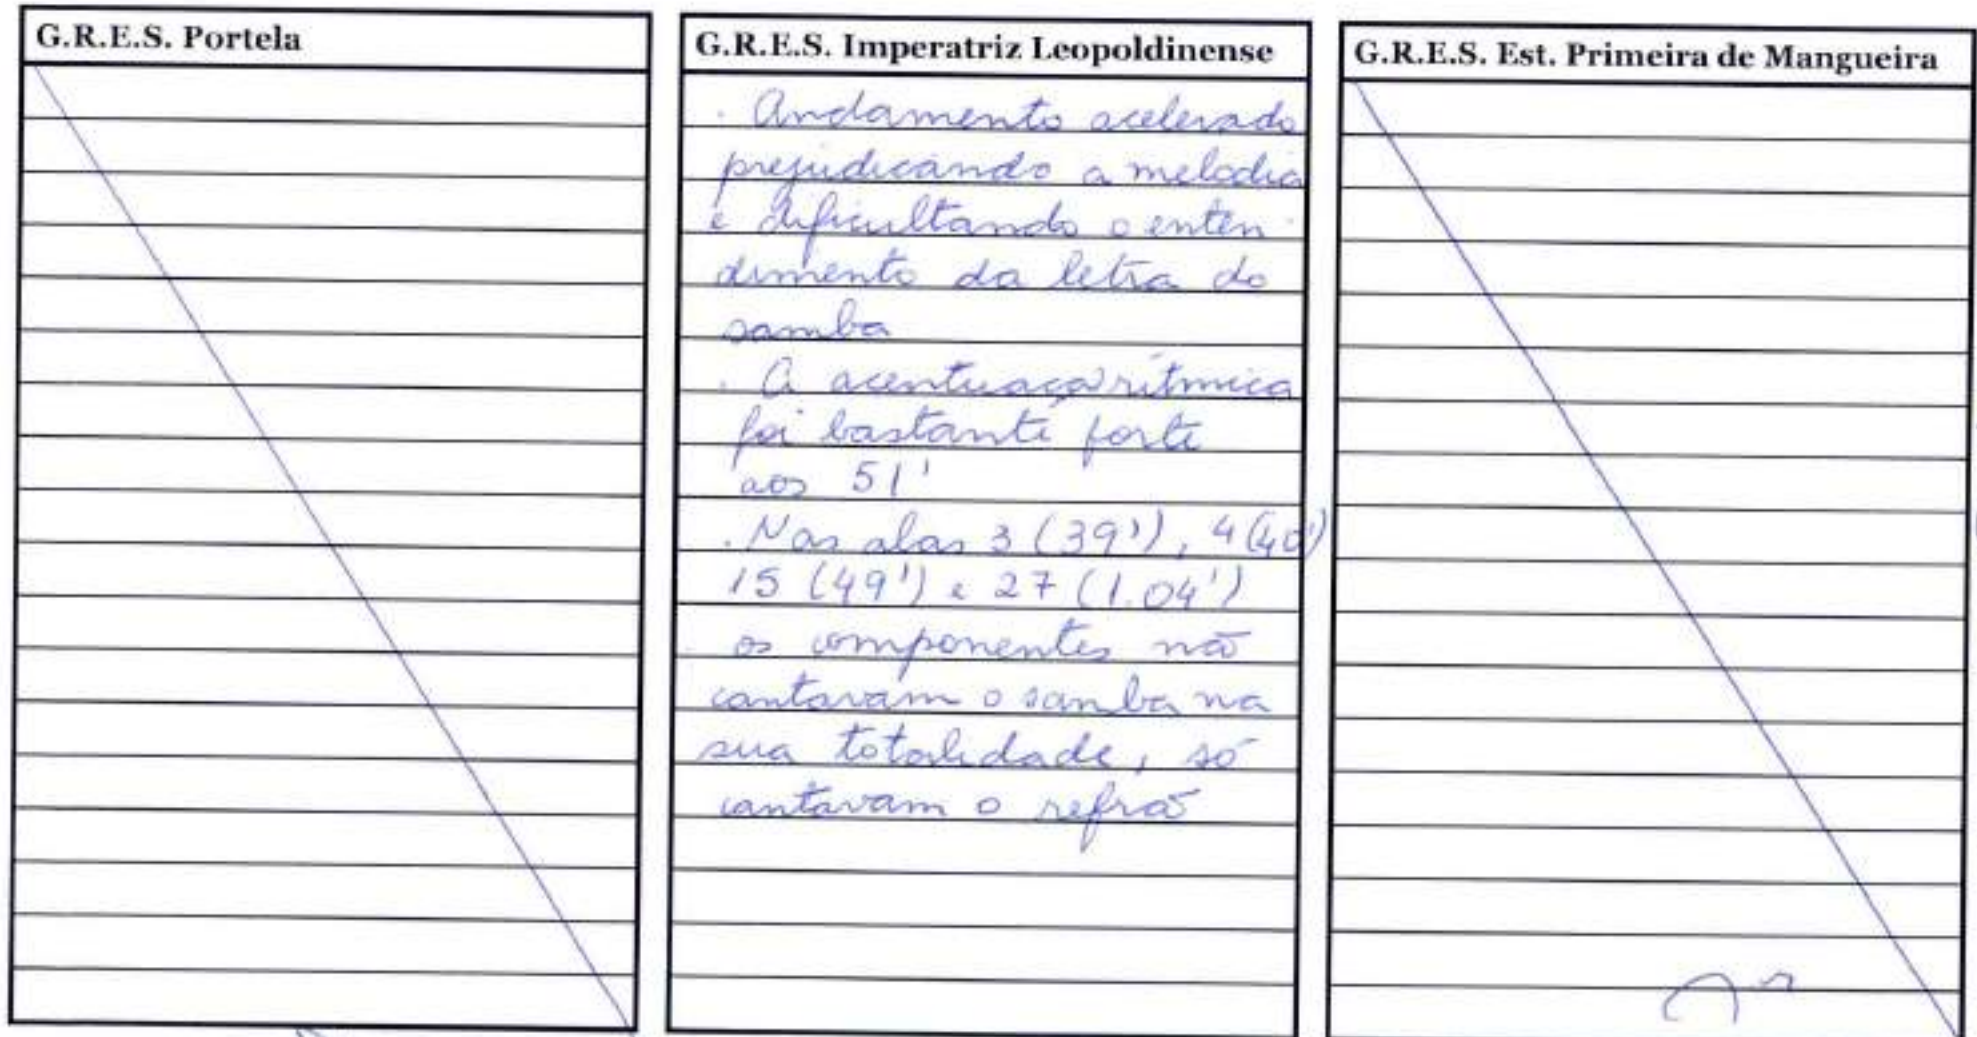 G.R.E.S. Portela
G.R.E.S. Imperatriz Leopoldinense
. Andamento acelerado
prejudicando a melodia
e dificultando o enten
dimento da letra do
samba
. A acentuaçã rítmica
foi bastante forte
aos 51'
. Nas alas 3 (39'), 4 (40')
15 (49') e 27 (1.04')
os componentes não
cantavam o samba na
sua totalidade, só
cantavam o refrão
G.R.E.S. Est. Primeira de Mangueira